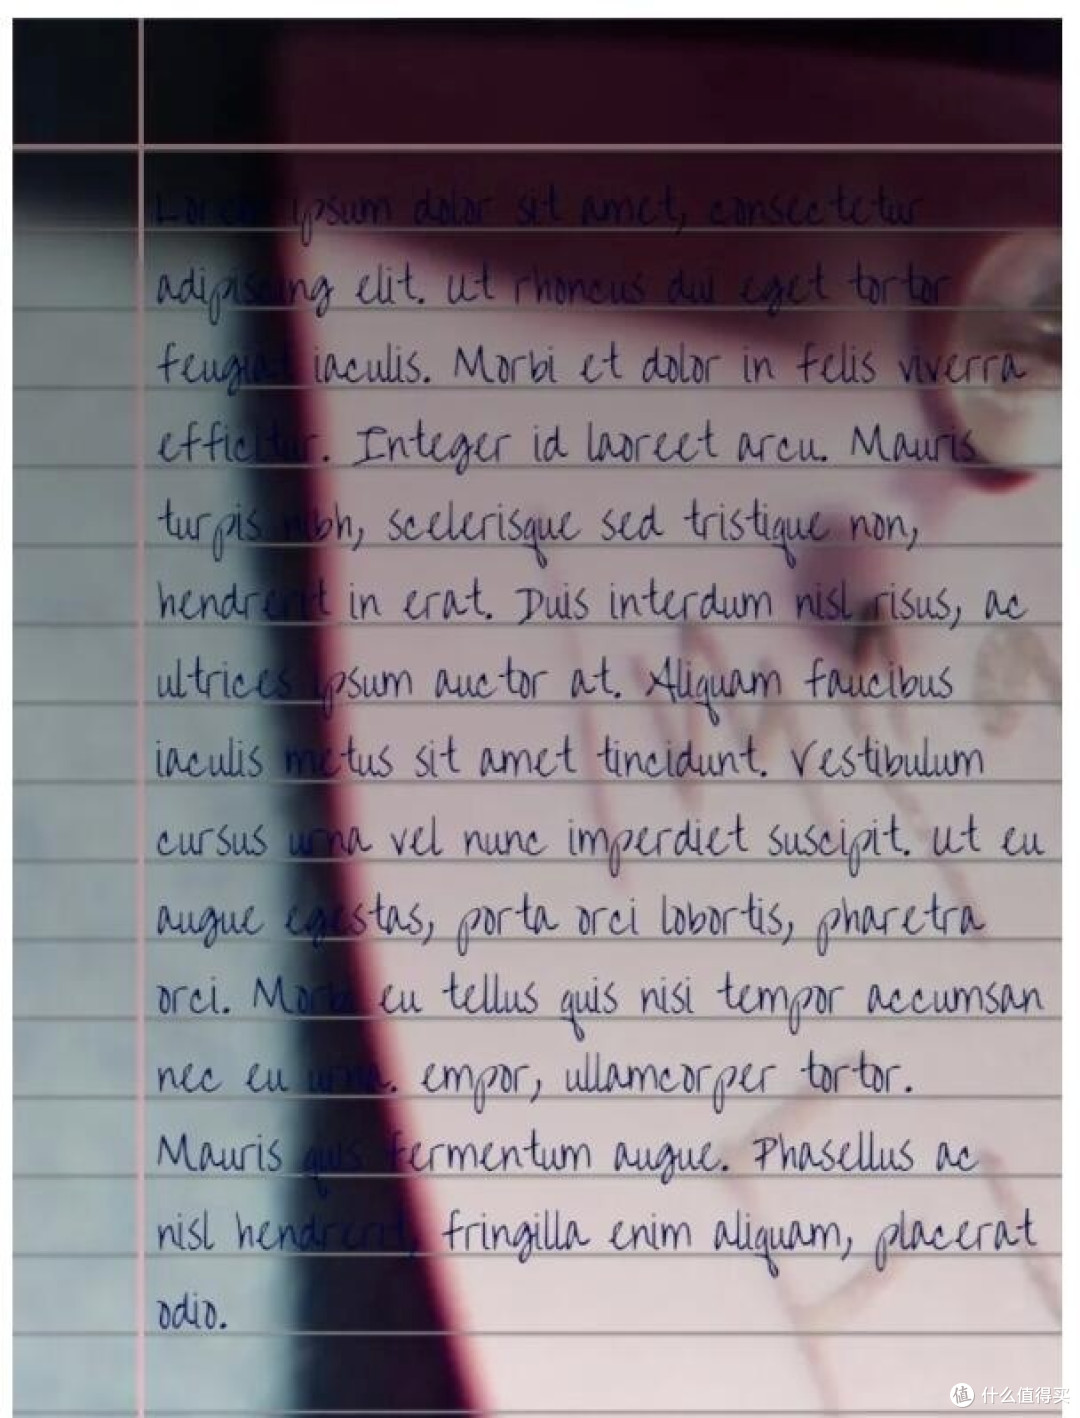 Lorem ipsum dolor sit amet, consectetur
adipiscing elit. Ut rhoncus dui eget tortor
feugiat iaculis. Morbi et dolor in felis viverra
efficitur. Integer id laoreet arcu. Mauris
turpis nibh, scelerisque sed tristique non,
hendrerit in erat. Duis interdum nisl risus, ac
ultrices ipsum auctor at. Aliquam faucibus
iaculis metus sit amet tincidunt. Vestibulum
cursus urna vel nunc imperdiet suscipit. Ut eu
augue egestas, porta orci lobortis, pharetra
orci. Morbi eu tellus quis nisi tempor accumsan
nec eu urna. empor, ullamcorper tortor.
Mauris quis fermentum augue. Phasellus ac
nisl hendrerit, fringilla enim aliquam, placerat
odio.
值 什么值得买